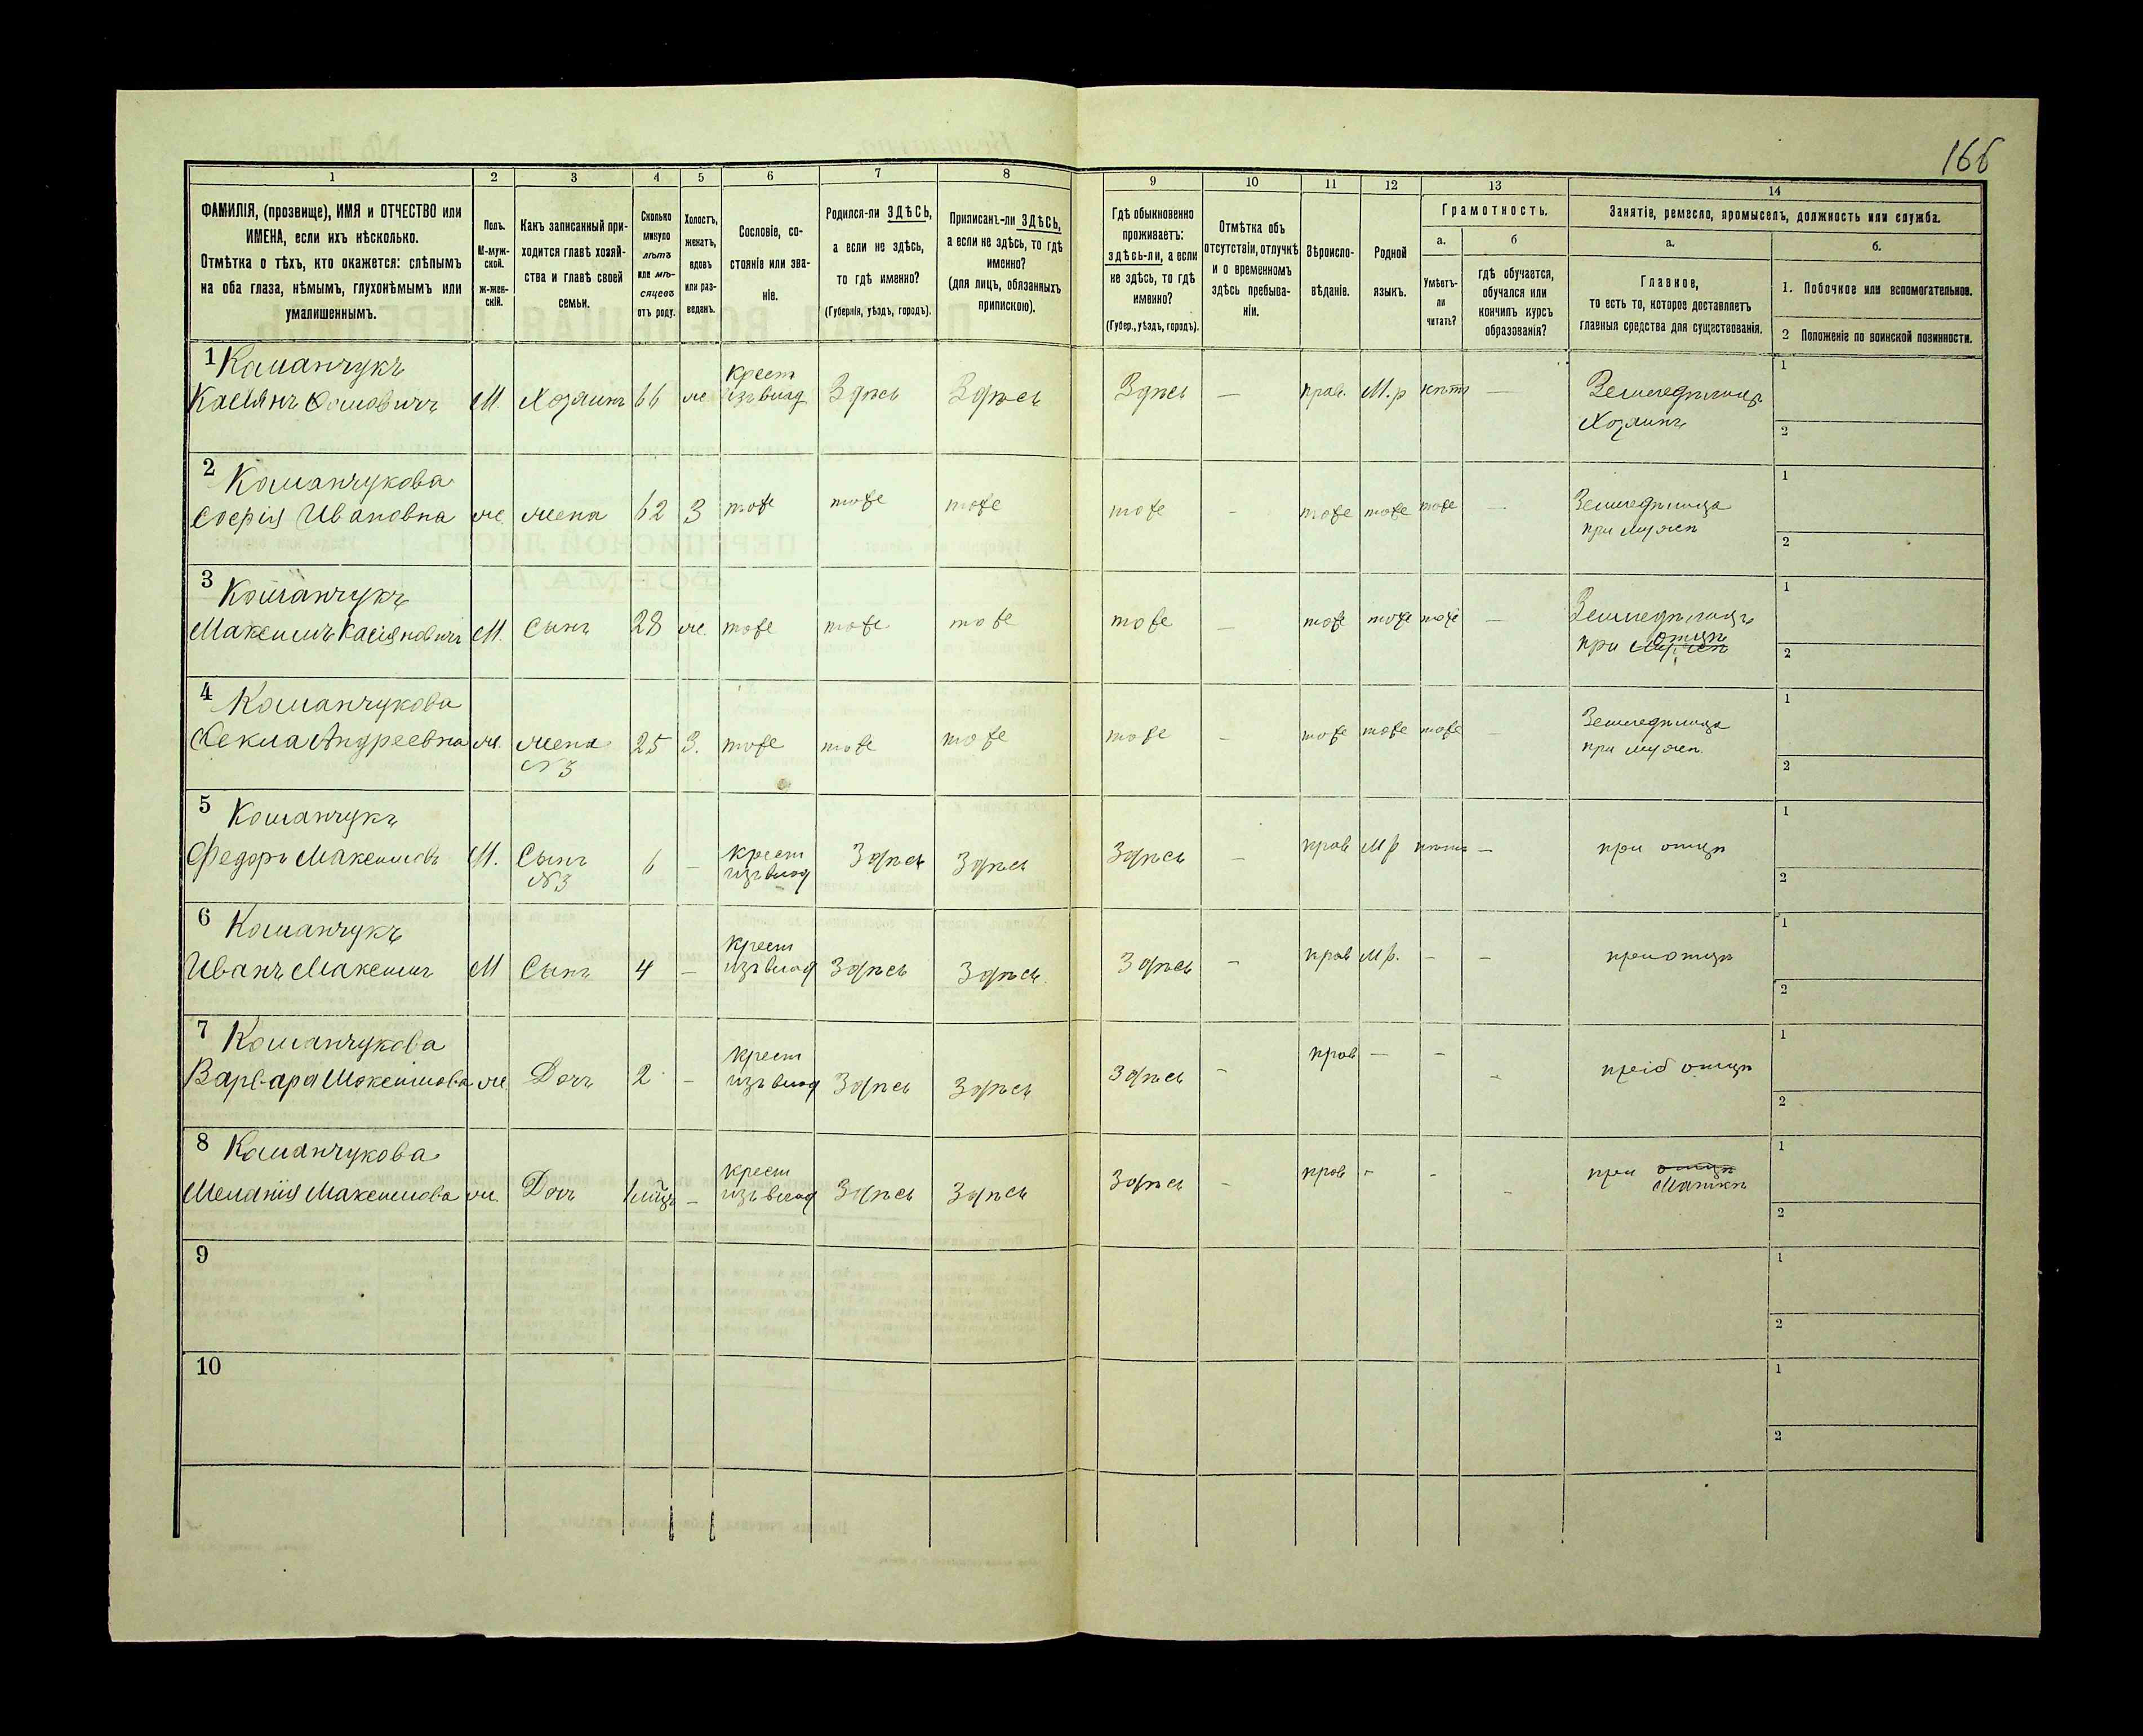 166
1 2 3 4 5 6 7 8 9 10 11 12 13 14
ФАМИЛІЯ, (прозвище), ИМЯ и ОТЧЕСТВО или
ИМЕНА, если ихъ нѣсколько.
Отмѣтка о тѣхъ, кто окажется: слѣпымъ
на оба глаза, нѣмымъ, глухонѣмымъ или
умалишеннымъ.
Полъ.
М-муж-
ской.
Ж-жен-
скій.
Какъ записанный при-
ходится главѣ хозяй-
ства и главѣ своей
семьи.
Сколько
минуло
лѣтъ
или мѣ-
сяцевъ
отъ роду.
Холостъ,
женатъ,
вдовъ
или раз-
веденъ.
Сословіе, со-
стояніе или зва-
ніе.
Родился-ли ЗДѢСЬ,
а если не здѣсь,
то гдѣ именно?
(Губернія, уѣздъ, городъ).
Приписанъ-ли ЗДѢСЬ,
а если не здѣсь, то гдѣ
именно?
(для лицъ, обязанныхъ
припискою).
Гдѣ обыкновенно
проживаетъ:
здѣсь-ли, а если
не здѣсь, то гдѣ
именно?
(Губер., уѣздъ, городъ).
Отмѣтка объ
отсутствіи, отлучкѣ
и о временномъ
здѣсь пребыва-
ніи.
Вѣроиспо-
вѣданіе.
Родной
языкъ.
Грамотность.
а.
Умѣетъ-
ли
читать?
б
гдѣ обучается,
обучался или
кончилъ курсъ
образованія?
Занятіе, ремесло, промыселъ, должность или служба.
а.
Главное,
то есть то, которое доставляетъ
главныя средства для существованія.
б.
1. Побочное или вспомогательное.
2 Положеніе по воинской повинности.
1 Команчукъ
Касіянъ Фомовичъ М. Хозяинъ 66 ж крест изъ влад Здѣсь Здѣсь Здѣсь — прав. М.р нѣтъ — Земледѣлецъ
Хозяинъ
1
2
2 Команчукова
Софія Ивановна ж. жена 62 З тоже тоже тоже тоже - тоже тоже тоже — Земледѣлица
при мужѣ
1
2
3 Команчукъ
Максимъ Касіяновичъ М. Сынъ 28 ж. тоже тоже тоже тоже — тоже тоже тоже — Земледѣлецъ
при мужѣ отцѣ
1
2
4 Команчукова
Фекла Андреевна ж. жена 25 З. тоже тоже тоже тоже - тоже тоже тоже — Земледѣлица
№3 при мужѣ.
1
2
5 Команчукъ
Федоръ Максимовъ М. Сынъ 6 — крест изъ влад Здѣсь Здѣсь Здѣсь — прав М р нѣтъ — при отцѣ
№3
1
2
6 Команчукъ
Иванъ Максимъ М Сынъ 4 — крест изъ влад Здѣсь Здѣсь Здѣсь - прав М р. - - при отцѣ
1
2
7 Команчукова
Варвара Максимова ж. Дочъ 2 - крест изъ влад Здѣсь Здѣсь Здѣсь - прав — - - при отцѣ
1
2
8 Команчукова
Меланія Максимова ж. Дочъ — крест изъ влад Здѣсь Здѣсь Здѣсь - прав - - - при отцѣ
Маткѣ
1
2
9
1
2
10
1
2